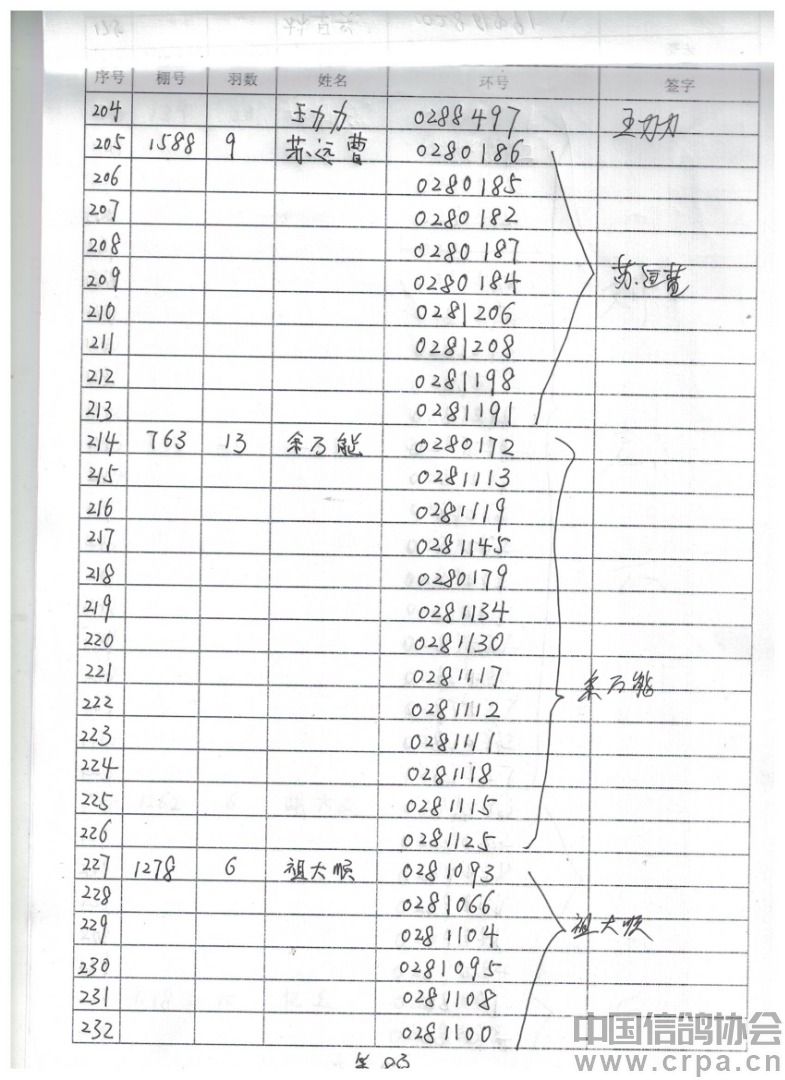 序号 棚号 羽数 姓名 环号 签字
204 王力力 0288497 王力力
205 1588 9 苏远曹 0280186
206 0280185
207 0280182
208 0280187
209 0280184 苏远曹
210 0281206
211 0281208
212 0281198
213 0281191
214 763 13 余万能 0280172
215 0281113
216 0281119
217 0281145
218 0280179
219 0281134
220 0281130
221 0281117 余万能
222 0281112
223 0281111
224 0281118
225 0281115
226 0281125
227 1278 6 祖大顺 0281093
228 0281066
229 0281104 祖大顺
230 0281095
231 0281108
232 0281100
中国信鸽协会
www.crpa.cn